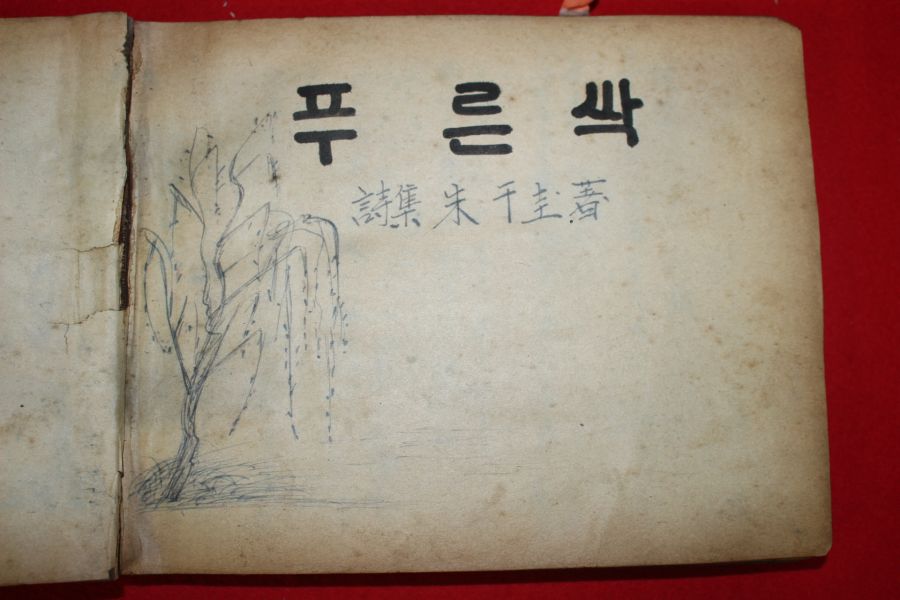 푸른싹
詩集 朱千圭著